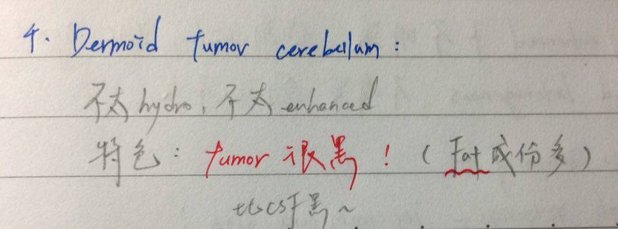 4. Dermoid tumor cerebellum :
不太 hydro, 不太 enhanced
特色 : tumor 很黑 ! ( Fat 成份多 )
比CSF黑~